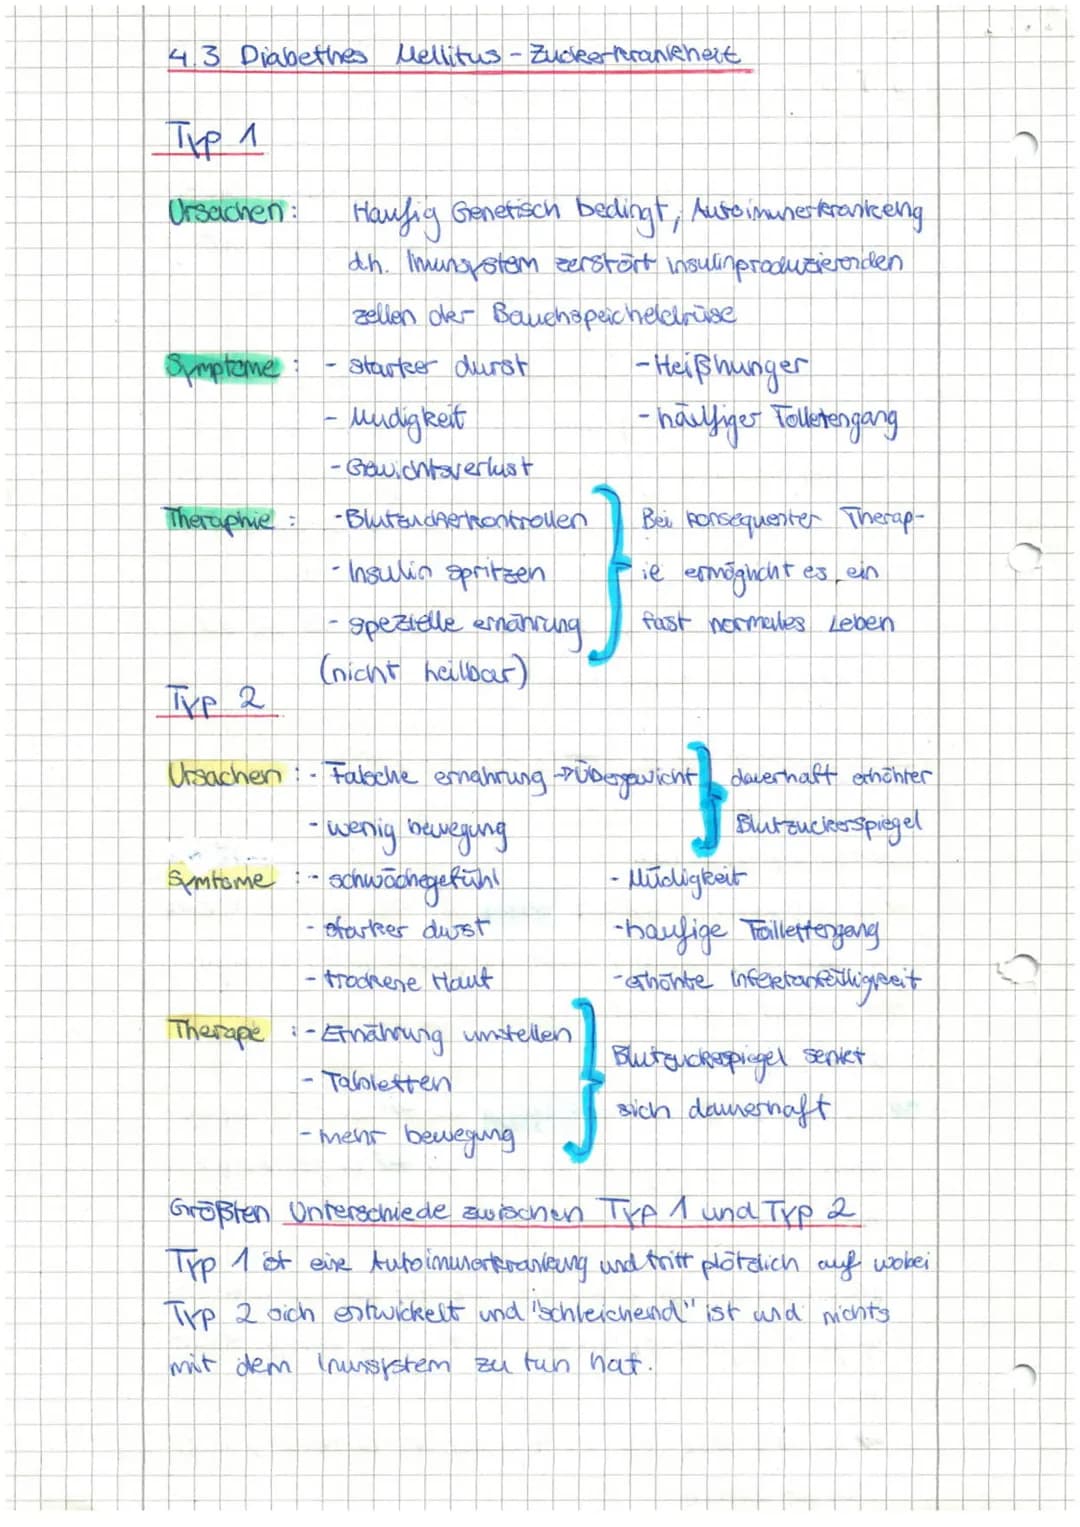 4.3 Diabethes Mellitus - Zuckerkrankheit
Typ 1
Ursachen: Haufig Genetisch bedingt, Autoimunerkrankeng
d.h. Imunsystem zerstört insulinproduzierenden
zellen der Bauchspeicheldrüse
Symptome : - starker durst - Heißhunger
- Mudigkeit - häufiger Tolletengang
- Gewichtsverlust
Theraphie : - Blutzuckerkontrollen Bei konsequenter Therap-
- Insulin spritzen ie ermöglicht es ein
- spezielle ernährung fast normales Leben
(nicht heilbar)
Typ 2
Ursachen : - Falsche ernahrung → Übergewicht dauerhaft erhöhter
- wenig bewegung Blutzuckerspiegel
Symtome : - schwächegefühl - Müdigkeit
- starker durst - haufige Toillettengang
- trockene Haut - erhöhte Infektanfälligkeit
Therape : - Ernährung umstellen Blutzuckerspiegel senkt
- Tabletten sich dauerhaft
- mehr bewegung
Größten Unterschiede zwischen Typ 1 und Typ 2
Typ 1 ist eine Autoimunerkrankung und tritt plötzlich auf wobei
Typ 2 sich entwickelt und "schleichend" ist und nichts
mit dem Inussystem zu tun hat.